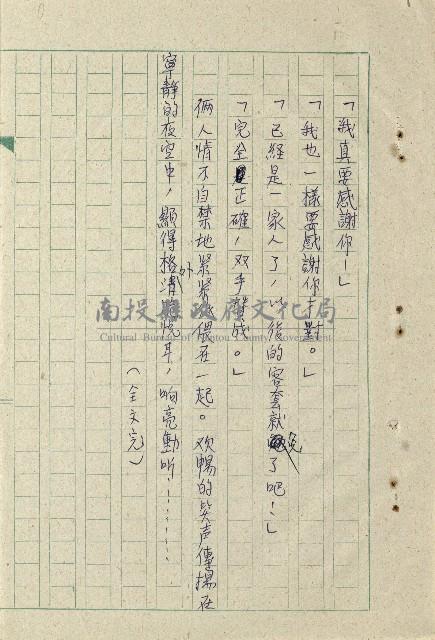 「我真要感謝你!」
「我也一樣要感謝你才對。」
「已經是一家人了,以後的客套就免了吧!」
「完全正確,双手贊成。」
倆人情不自禁地緊緊偎在一起。欢暢的笑声傳揚在
寧靜的夜空中,顯得格外清脆悅耳,响亮動听!…………
(全文完)
南投縣政府文化局
Cultural Bureau of Nantou County Government